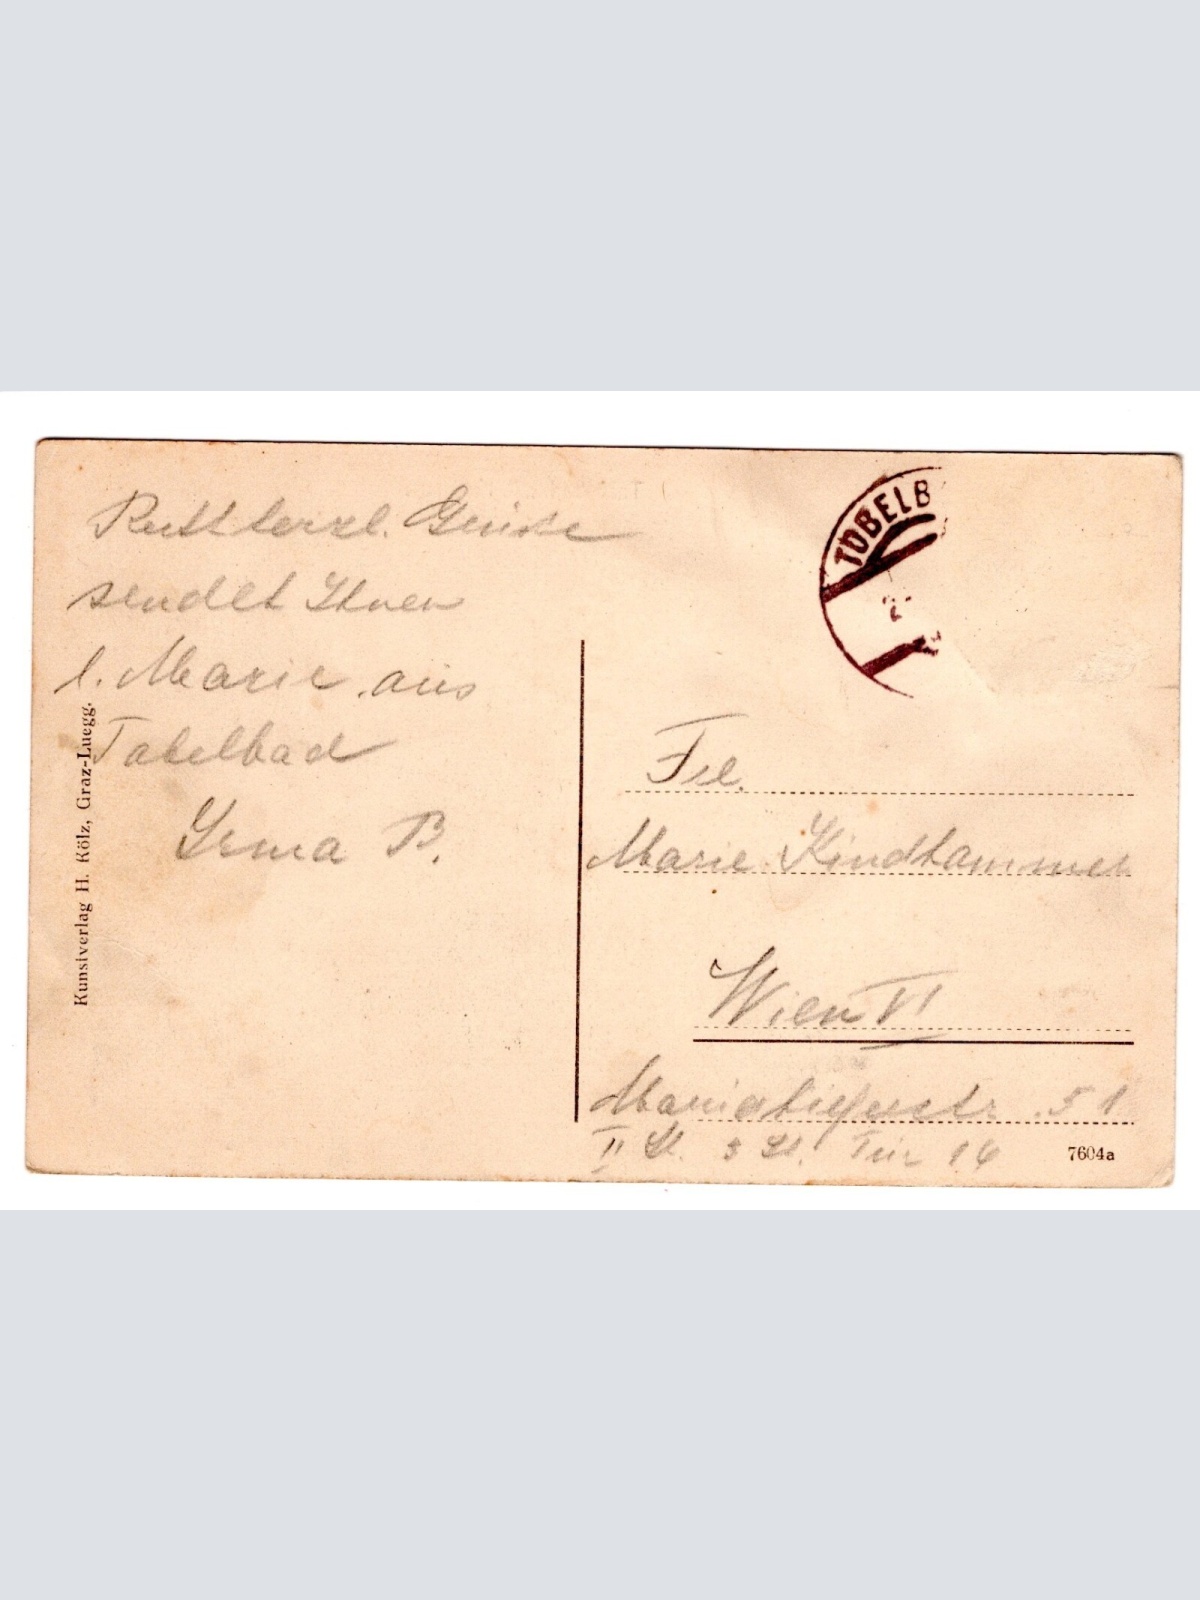 herzl. Grüße
sendet Ihnen
l. Marie aus
Tobelbad
Irma B.
Kunstverlag H. Kölz, Graz-Luegg.
TOBELB
2
Frl.
Marie Kindhammer
Wien VI
Mariahilferstr. 51
II St. 3 St. Tür 16
7604a